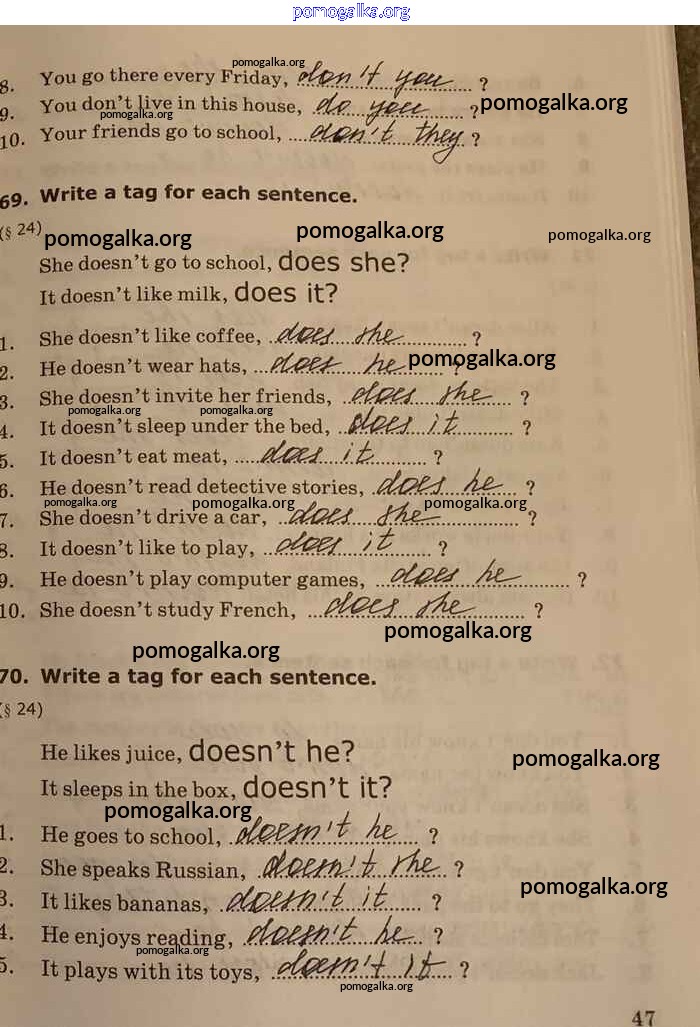 pomogalka.org
pomogalka.org
8. You go there every Friday, don't you ?
9. You don't live in this house, do you ? pomogalka.org
pomogalka.org
10. Your friends go to school, don't they ?
69. Write a tag for each sentence.
(§ 24) pomogalka.org pomogalka.org pomogalka.org
She doesn't go to school, does she?
It doesn't like milk, does it?
1. She doesn't like coffee, does she ?
2. He doesn't wear hats, does he ? pomogalka.org
3. She doesn't invite her friends, does she ?
pomogalka.org pomogalka.org
4. It doesn't sleep under the bed, does it ?
5. It doesn't eat meat, does it ?
6. He doesn't read detective stories, does he ?
pomogalka.org pomogalka.org pomogalka.org
7. She doesn't drive a car, does she ?
8. It doesn't like to play, does it ?
9. He doesn't play computer games, does he ?
10. She doesn't study French, does she ?
pomogalka.org
pomogalka.org
70. Write a tag for each sentence.
(§ 24)
He likes juice, doesn't he?
pomogalka.org
It sleeps in the box, doesn't it?
pomogalka.org
1. He goes to school, doesn't he ?
2. She speaks Russian, doesn't she ?
pomogalka.org
3. It likes bananas, doesn't it ?
4. He enjoys reading, doesn't he ?
pomogalka.org
5. It plays with its toys, doesn't it ?
pomogalka.org
47